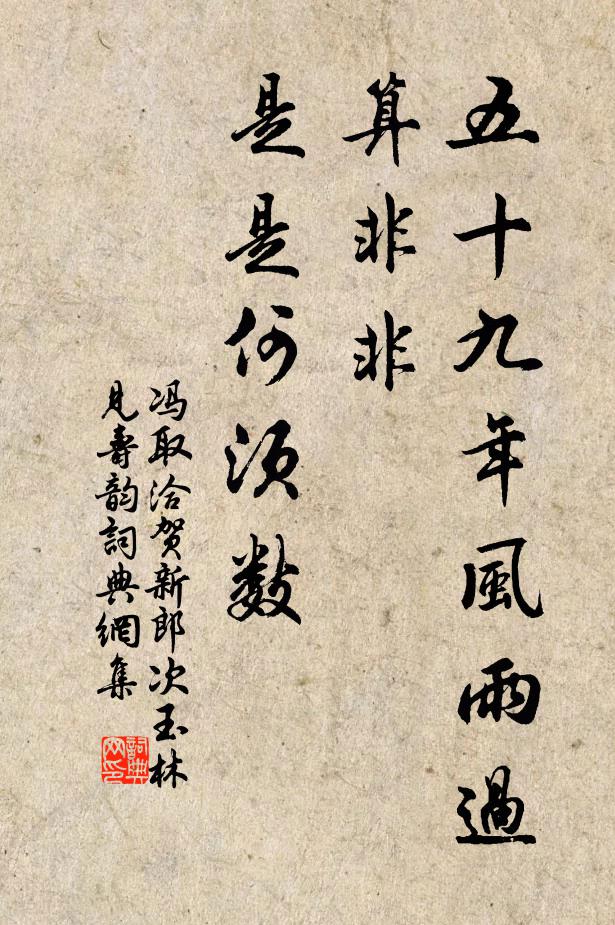 五十九年風雨過
算非非
是是何須數
冯取洽贺新郎次玉林
見壽韵詞典網集
詞典網印